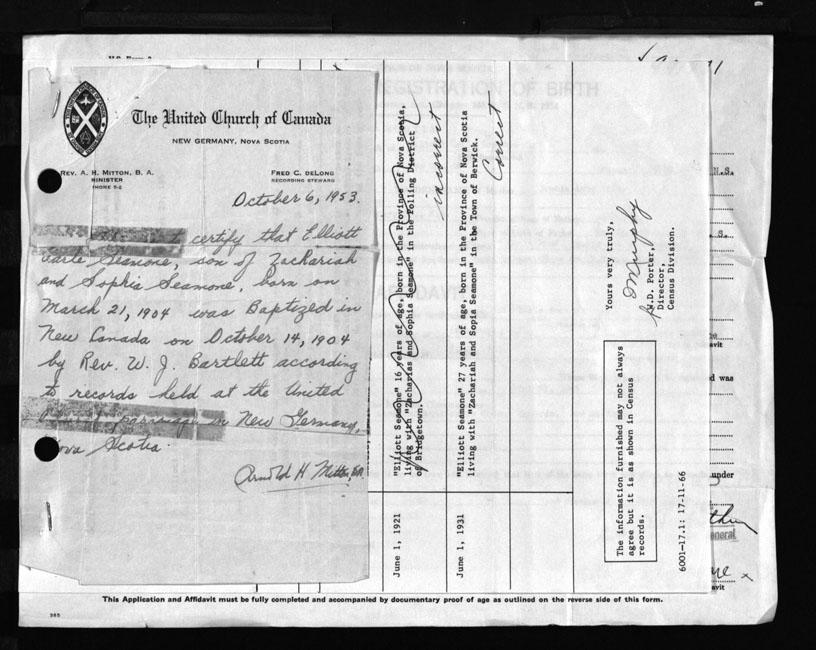 The United Church of Canada
NEW GERMANY, NOVA SCOTIA
REV. A. H. MITTON, B. A.
MINISTER
PHONE 5-2
FRED C. DELONG
RECORDING STEWARD
October 6, 1953.
certify that Elliott
Earle Seamone, son of Zachariah
and Sophia Seamone, born on
March 21, 1904 was Baptized in
New Canada on October 14, 1904
by Rev. W. J. Bartlett according
to records held at the United
in New Germany,
Nova Scotia.
Arnold H Mitton, B.A.
REGISTRATION OF BIRTH
June 1, 1921
"Elliott Seamone" 16 years of age, born in the Province of Nova Scotia,
living with "Zacharias and Sophia Seamone" in the Polling District
of Bridgetown.
incorrect
June 1, 1931
"Elliott Seamone" 27 years of age, born in the Province of Nova Scotia
living with "Zachariah and Sopia Seamone" in the Town of Berwick.
Correct
Yours very truly,
W.D. Porter,
Director,
Census Division.
The information furnished may not always
agree but it is as shown in Census
records.
6001-17.1: 17-11-66
N.S.
S.
avit
d was
under
General
avit
x
This Application and Affidavit must be fully completed and accompanied by documentary proof of age as outlined on the reverse side of this form.